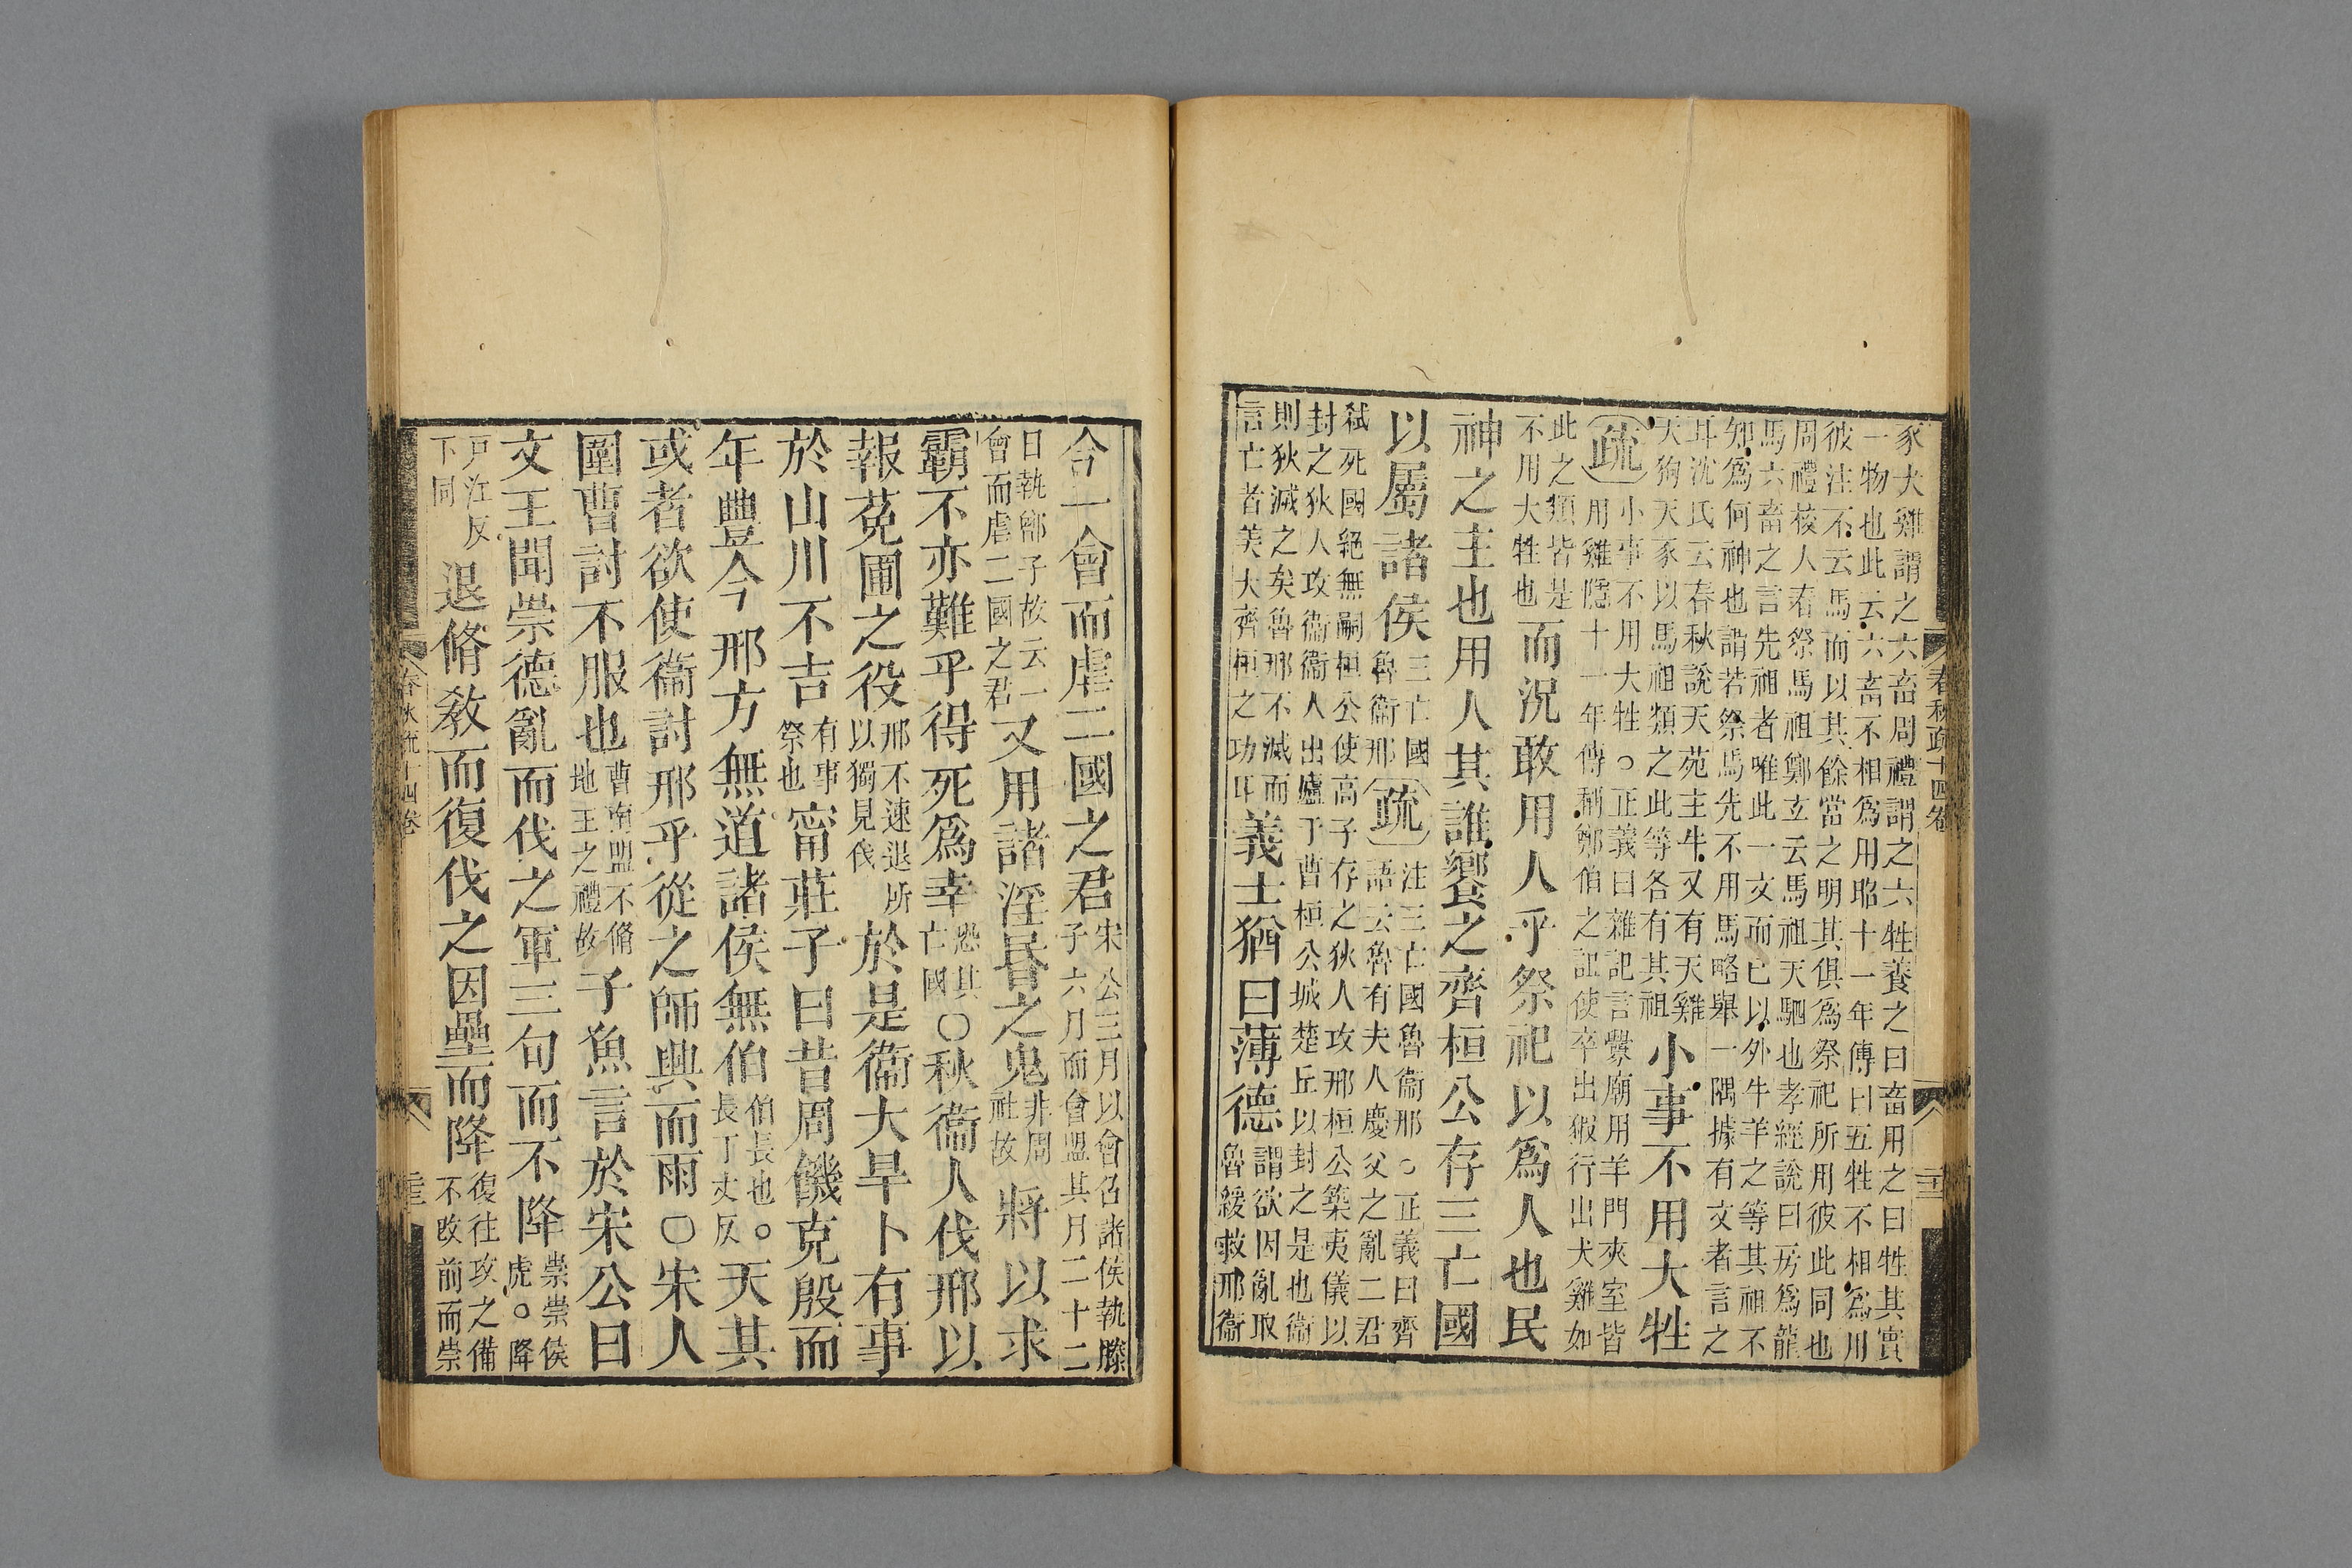 春秋疏十四卷
豕犬雞謂之六畜周禮謂之六牲養之曰畜用之曰牲其實
一物也此云六畜不相爲用昭十一年傳曰五牲不相爲用
彼注不云馬而以其餘當之明其俱爲祭祀所用彼此同也
周禮校人春祭馬祖鄭玄云馬祖天駟也孝經說曰房爲龍
馬六畜之言先祖者唯此一文而已以外牛羊之等其祖不
知爲何神也謂若祭馬先不用馬略舉一隅據有文者言之
耳沈氏云春秋說天苑主牛又有天雞
天狗天豕以馬祖類之此等各有其祖
小事不用大牲
疏
小事不用大牲○正義曰雜記言釁廟用羊門夾室皆
用雞隱十一年傳稱鄭伯之詛使卒出豭行出犬雞如
此之類皆是
不用大牲也
而況敢用人乎祭祀以爲人也民
神之主也用人其誰饗之齊桓公存三亡國
以屬諸侯
三亡國
魯衞邢
疏
注三亡國魯衞邢○正義曰齊
語云魯有夫人慶父之亂二君
弒死國絕無嗣桓公使高子存之狄人攻邢桓公築夷儀以
封之狄人攻衞衞人出廬于曹桓公城楚丘以封之是也衞
則狄滅之矣魯邢不滅而
言亡者美大齊桓之功耳
義士猶曰薄德
謂欲因亂取
魯緩救邢衞
今一會而虐二國之君
宋公三月以會召諸侯執滕
子六月而會盟其月二十二
日執鄫子故云一
會而虐二國之君
又用諸淫昏之鬼
非周
社故
將以求
霸不亦難乎得死爲幸
恐其
亡國
○秋衞人伐邢以
報菟圃之役
邢不速退所
以獨見伐
於是衞大旱卜有事
於山川不吉
有事
祭也
甯莊子曰昔周饑克殷而
年豐今邢方無道諸侯無伯
伯長也○
長丁丈反
天其
或者欲使衞討邢乎從之師興而雨○宋人
圍曹討不服也
曹南盟不脩
地主之禮故
子魚言於宋公曰
文王聞崇德亂而伐之軍三旬而不降
崇崇侯
虎○降
戸江反
下同
退脩教而復伐之因壘而降
復往攻之備
不改前而崇
春秋疏十四卷